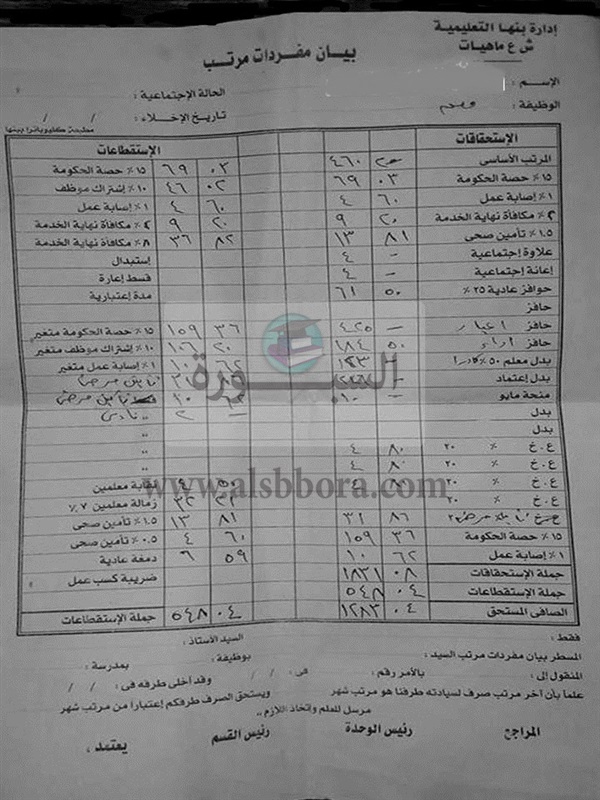 إدارة بنها التعليمية
ش ع ماهيات
بيان مفردات مرتب
الإسم :
الحالة الإجتماعية :
الوظيفة :
تاريخ الإخلاء : / /
مطبعة كليوباترا ببنها
الإستحقاقات
الإستقطاعات
المرتب الأساسى ٤٦٠
١٥٪ حصة الحكومة ٠٣ ٦٩
١٥٪ حصة الحكومة ٠٣ ٦٩
١٠٪ إشتراك موظف ٠٢ ٤٦
١٪ إصابة عمل ٦٠ ٤
١٪ إصابة عمل ٦٠ ٤
٢٪ مكافأة نهاية الخدمة ٢٠ ٩
٢٪ مكافأة نهاية الخدمة ٢٠ ٩
١.٥٪ تأمين صحى ٨١ ١٣
٨٪ مكافأة نهاية الخدمة ٨٢ ٣٦
علاوة إجتماعية - ٤
إستبدال
إعانة إجتماعية - ٤
قسط إعارة
حوافز عادية ٢٥٪ ٥٠ ٦١
مدة إعتبارية
حافز
حافز - ٤٢٥
١٥٪ حصة الحكومة متغير ٣٦ ١٥٩
حافز اداء ٥٠ ١٨٤
١٠٪ إشتراك موظف متغير ٢٠ ١٠٦
بدل معلم ٥٠٪ كادر
١٪ إصابة عمل متغير ٦٢ ١٠
بدل إعتماد
منحة مايو - ١٠
بدل
بدل
السبورة
www.alsbbora.com
ع.خ ٪ ٢٠ ٨٠ ٤
ع.خ ٪ ٢٠ ٨٠ ٤
ع.خ ٪ ٢٠ ٨٠ ٤
نقابة معلمين ٥٠ ٤
ع.خ ٪ ٢٠
زمالة معلمين ٧٪ ٢٢ ٣٢
٨٦ ٣١
١.٥٪ تأمين صحى ٨١ ١٣
١٥٪ حصة الحكومة ٣٦ ١٥٩
٠.٥٪ تأمين صحى ٦٠ ٤
١٪ إصابة عمل ٦٢ ١٠
دمغة عادية ٥٩ ٦
جملة الإستحقاقات ٠٨ ١٨٣١
ضريبة كسب عمل
جملة الإستقطاعات ٠٤ ٥٤٨
الصافى المستحق ٠٤ ١٢٨٣
جملة الإستقطاعات ٠٤ ٥٤٨
فقط :
السيد الأستاذ :
المسطر بيان مفردات مرتب السيد :
بوظيفة :
بمدرسة :
المنقول إلى : بالأمر رقم : فى / / وقد أخلى طرفه فى / /
علماً بأن أخر مرتب صرف لسيادته طرفنا هو مرتب شهر ويستحق الصرف طرفكم إعتباراً من مرتب شهر
مرسل للعلم وإتخاذ اللازم ،،
المراجع رئيس الوحدة رئيس القسم يعتمد ،